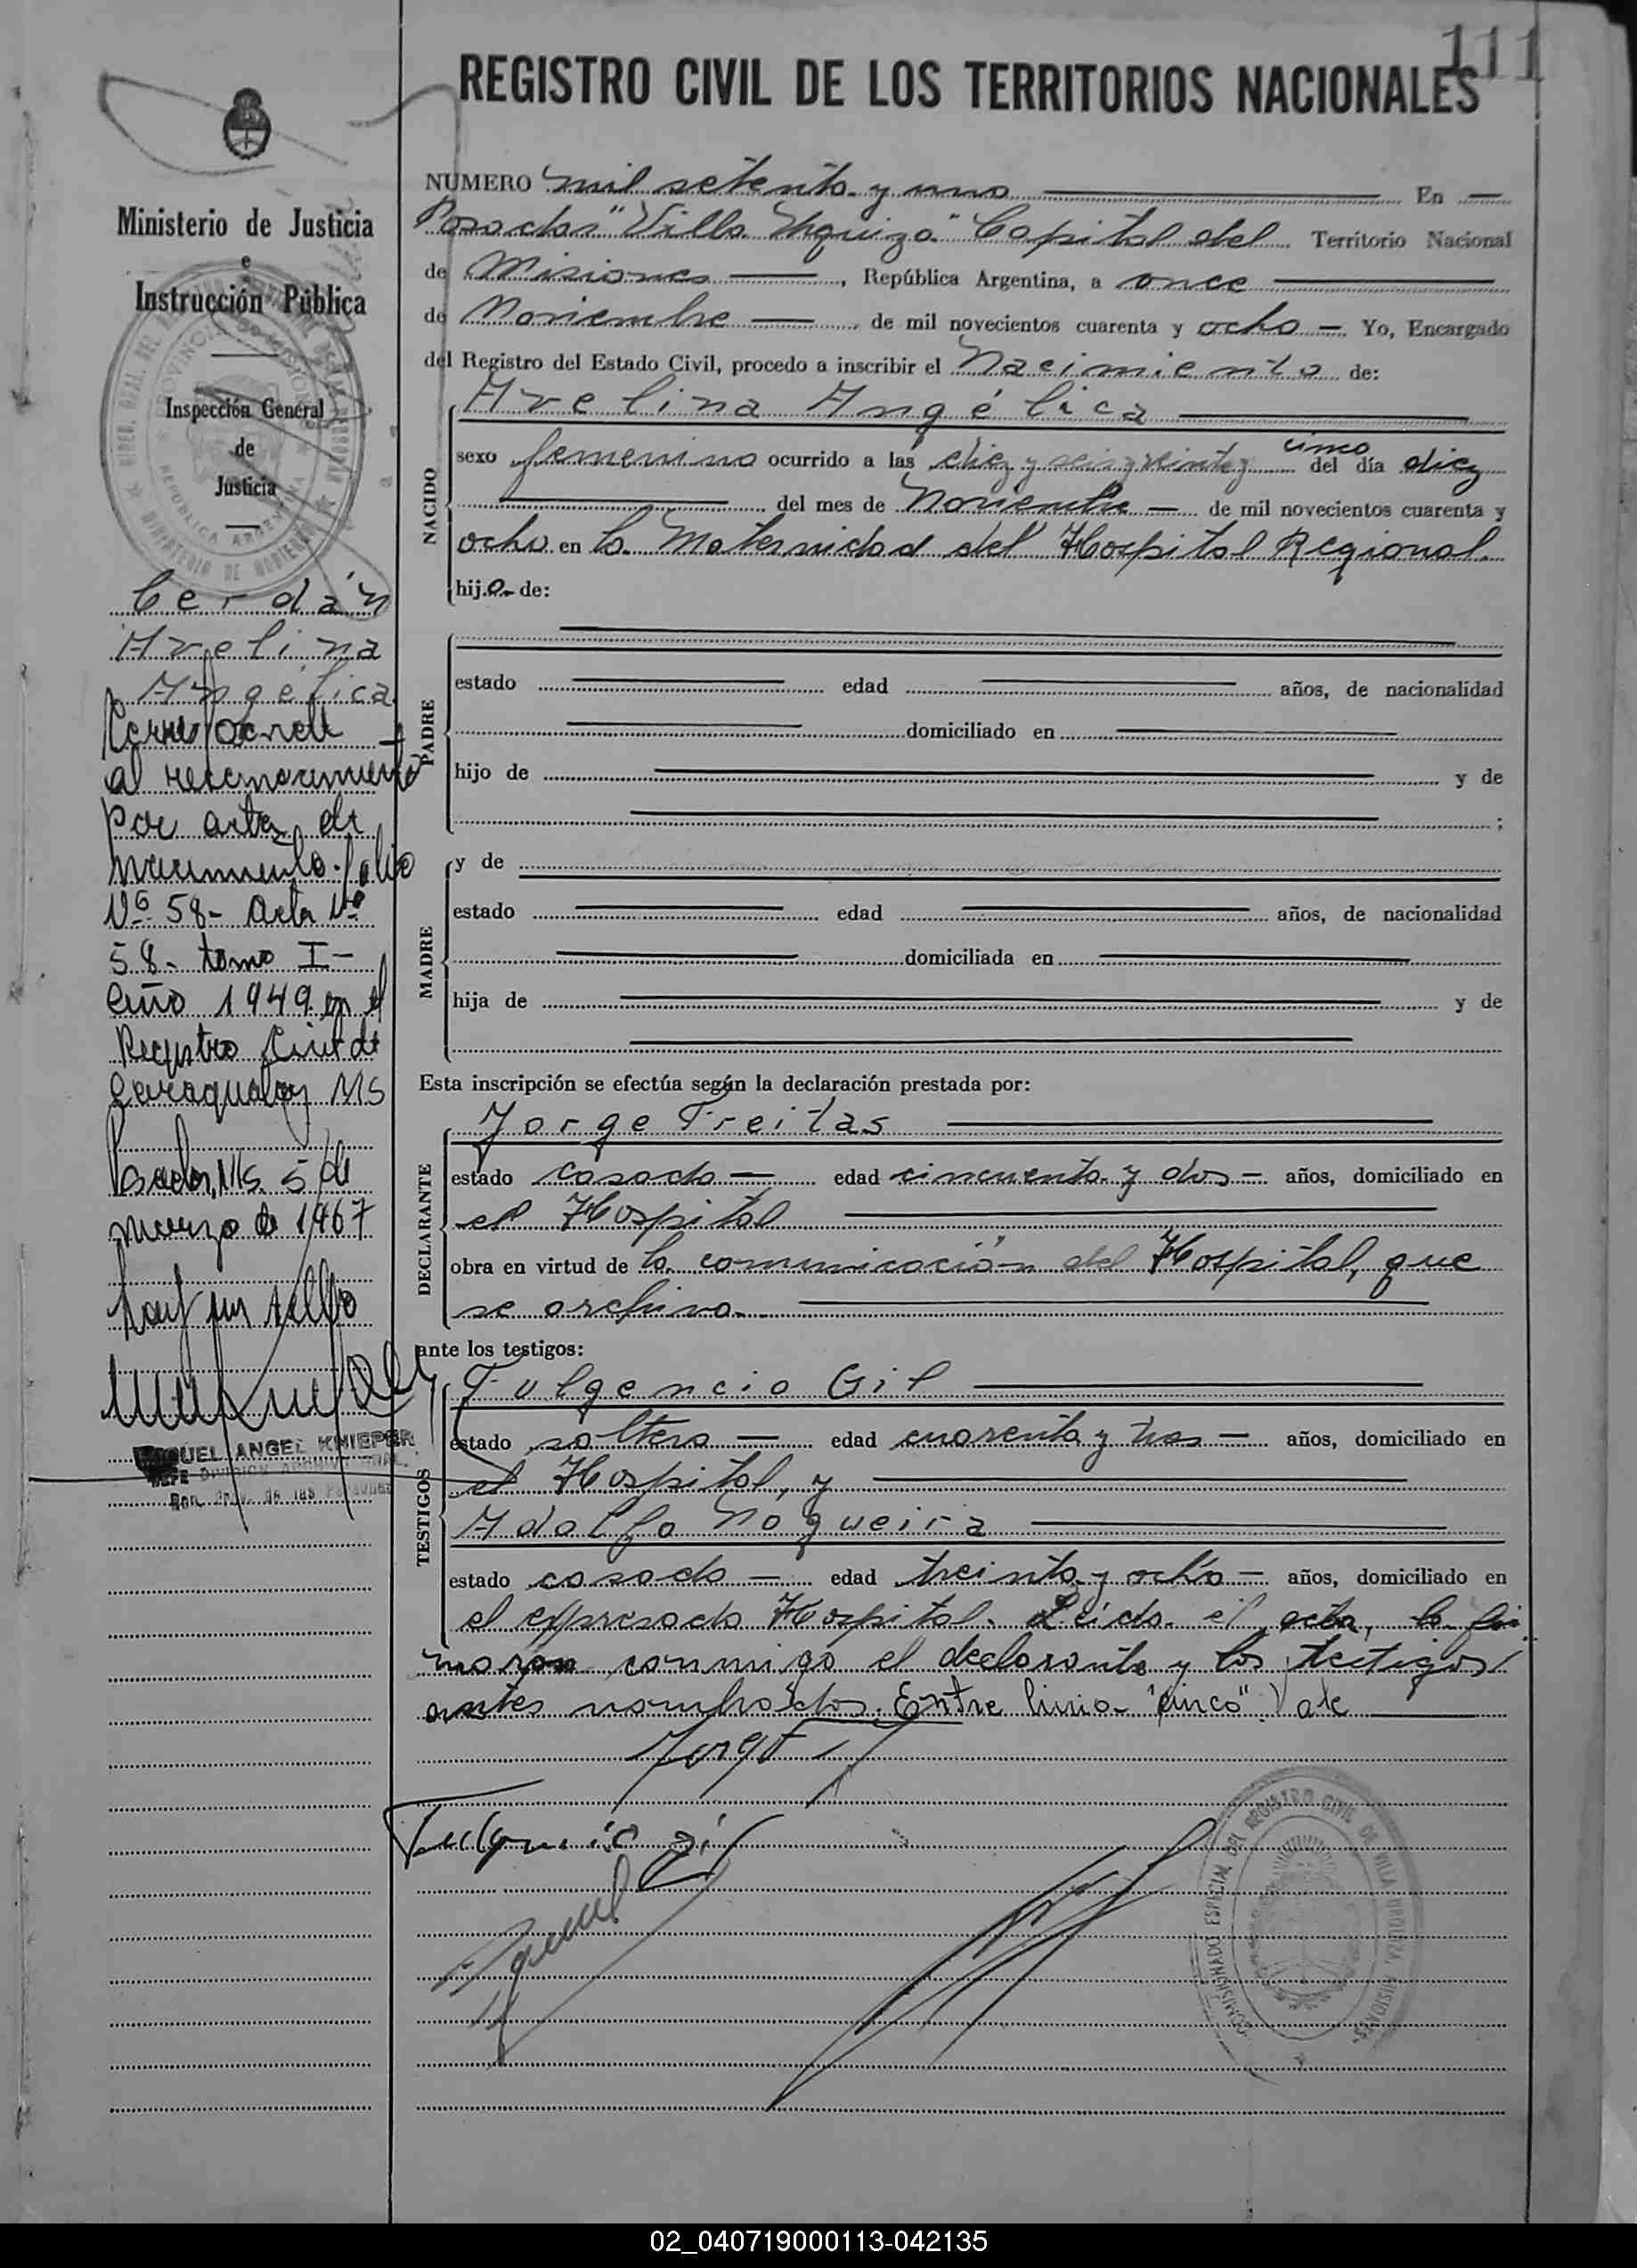 111
REGISTRO CIVIL DE LOS TERRITORIOS NACIONALES
Ministerio de Justicia
e
Instrucción Pública
Inspección General
de
Justicia
Cerdán
Avelina
Angélica
al reconocimiento
por acta de
nacimiento folio
Nº 58- Acta Nº
58- tomo I-
año 1949 en el
Registro Civil de
Posadas, Ms. 5 de
marzo de 1967
MIGUEL ANGEL KNIEPER
JEFE DIVISION ARCHIVO GRAL.
Reg. Prov. de las Personas
NUMERO mil setenta y uno En
Posadas "Villa Urquiza" Capital del Territorio Nacional
de Misiones, República Argentina, a once
de Noviembre de mil novecientos cuarenta y ocho Yo, Encargado
del Registro del Estado Civil, procedo a inscribir el Nacimiento de:
NACIDO
Avelina Angélica
cinco
sexo femenino ocurrido a las diez y seis y veinte y del día diez
del mes de Noviembre de mil novecientos cuarenta y
ocho en la Maternidad del Hospital Regional
hija de:
PADRE
estado edad años, de nacionalidad
domiciliado en
hijo de y de
;
MADRE
y de
estado edad años, de nacionalidad
domiciliada en
hija de y de
Esta inscripción se efectúa según la declaración prestada por:
DECLARANTE
Jorge Freitas
estado casado edad cincuenta y dos años, domiciliado en
el Hospital
obra en virtud de la comunicación del Hospital, que
se archiva.
ante los testigos:
TESTIGOS
Fulgencio Gil
estado soltero edad cuarenta y tres años, domiciliado en
el Hospital, y
Adolfo Nogueira
estado casado edad treinta y ocho años, domiciliado en
el expresado Hospital. Leida el acta, la fir
maron conmigo el declarante y los testigos
antes nombrados. Entre linia "cinco" Vale
Fulgencio Gil
COMISIONADO ESPECIAL DEL REGISTRO CIVIL DE VILLA URQUIZA, MISIONES
02_040719000113-042135